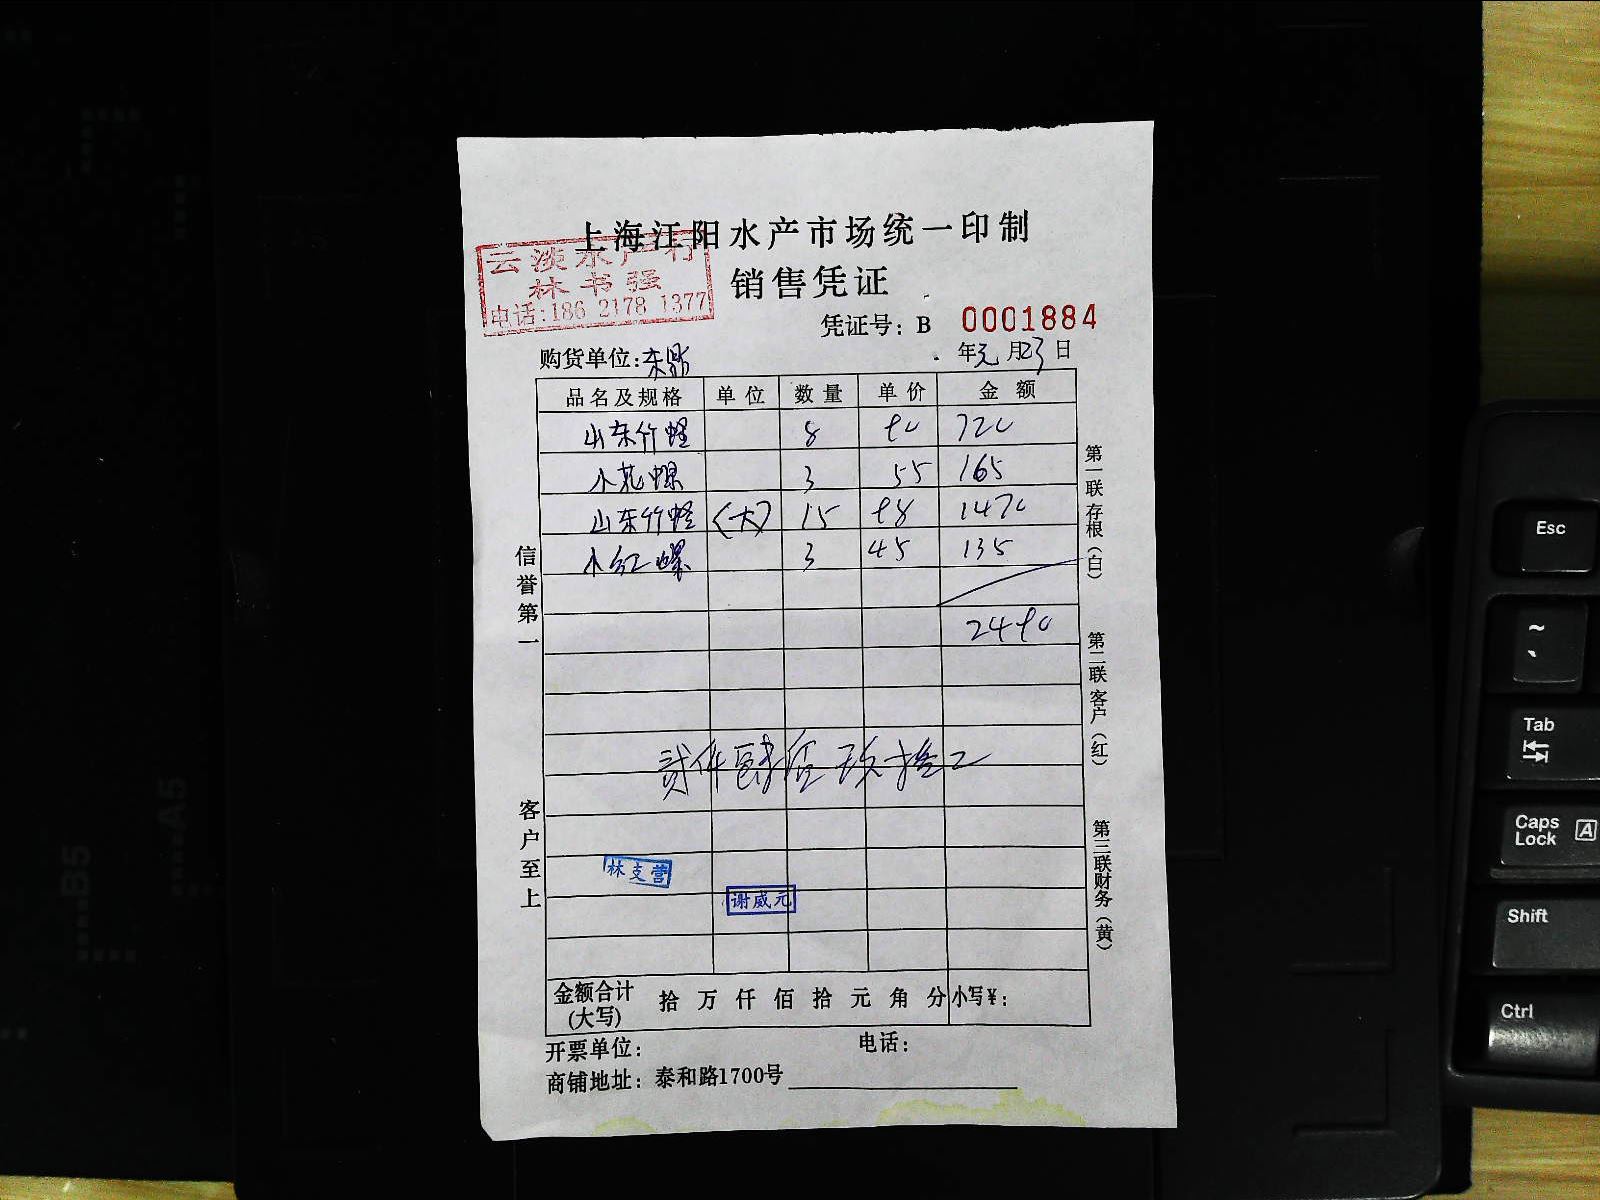 上海江阳水产市场统一印制
云淡水产行
林书强
电话:186 2178 1377
销售凭证
凭证号: B 0001884
购货单位:东鼎
年元月23日
品名及规格 单位 数量 单价 金额
山东竹蛏 8 90 720
小花螺 3 55 165
山东竹蛏 (大) 15 98 1470
小红螺 3 45 135
2490
贰仟肆佰玖拾元
林支营
谢威元
金额合计(大写) 拾万仟佰拾元角分 小写¥:
开票单位: 电话:
商铺地址: 泰和路1700号
信誉第一
客户至上
第一联存根(白)
第二联客户(红)
第三联财务(黄)
Esc
~
`
Tab
Caps Lock A
Shift
Ctrl
B5
A5